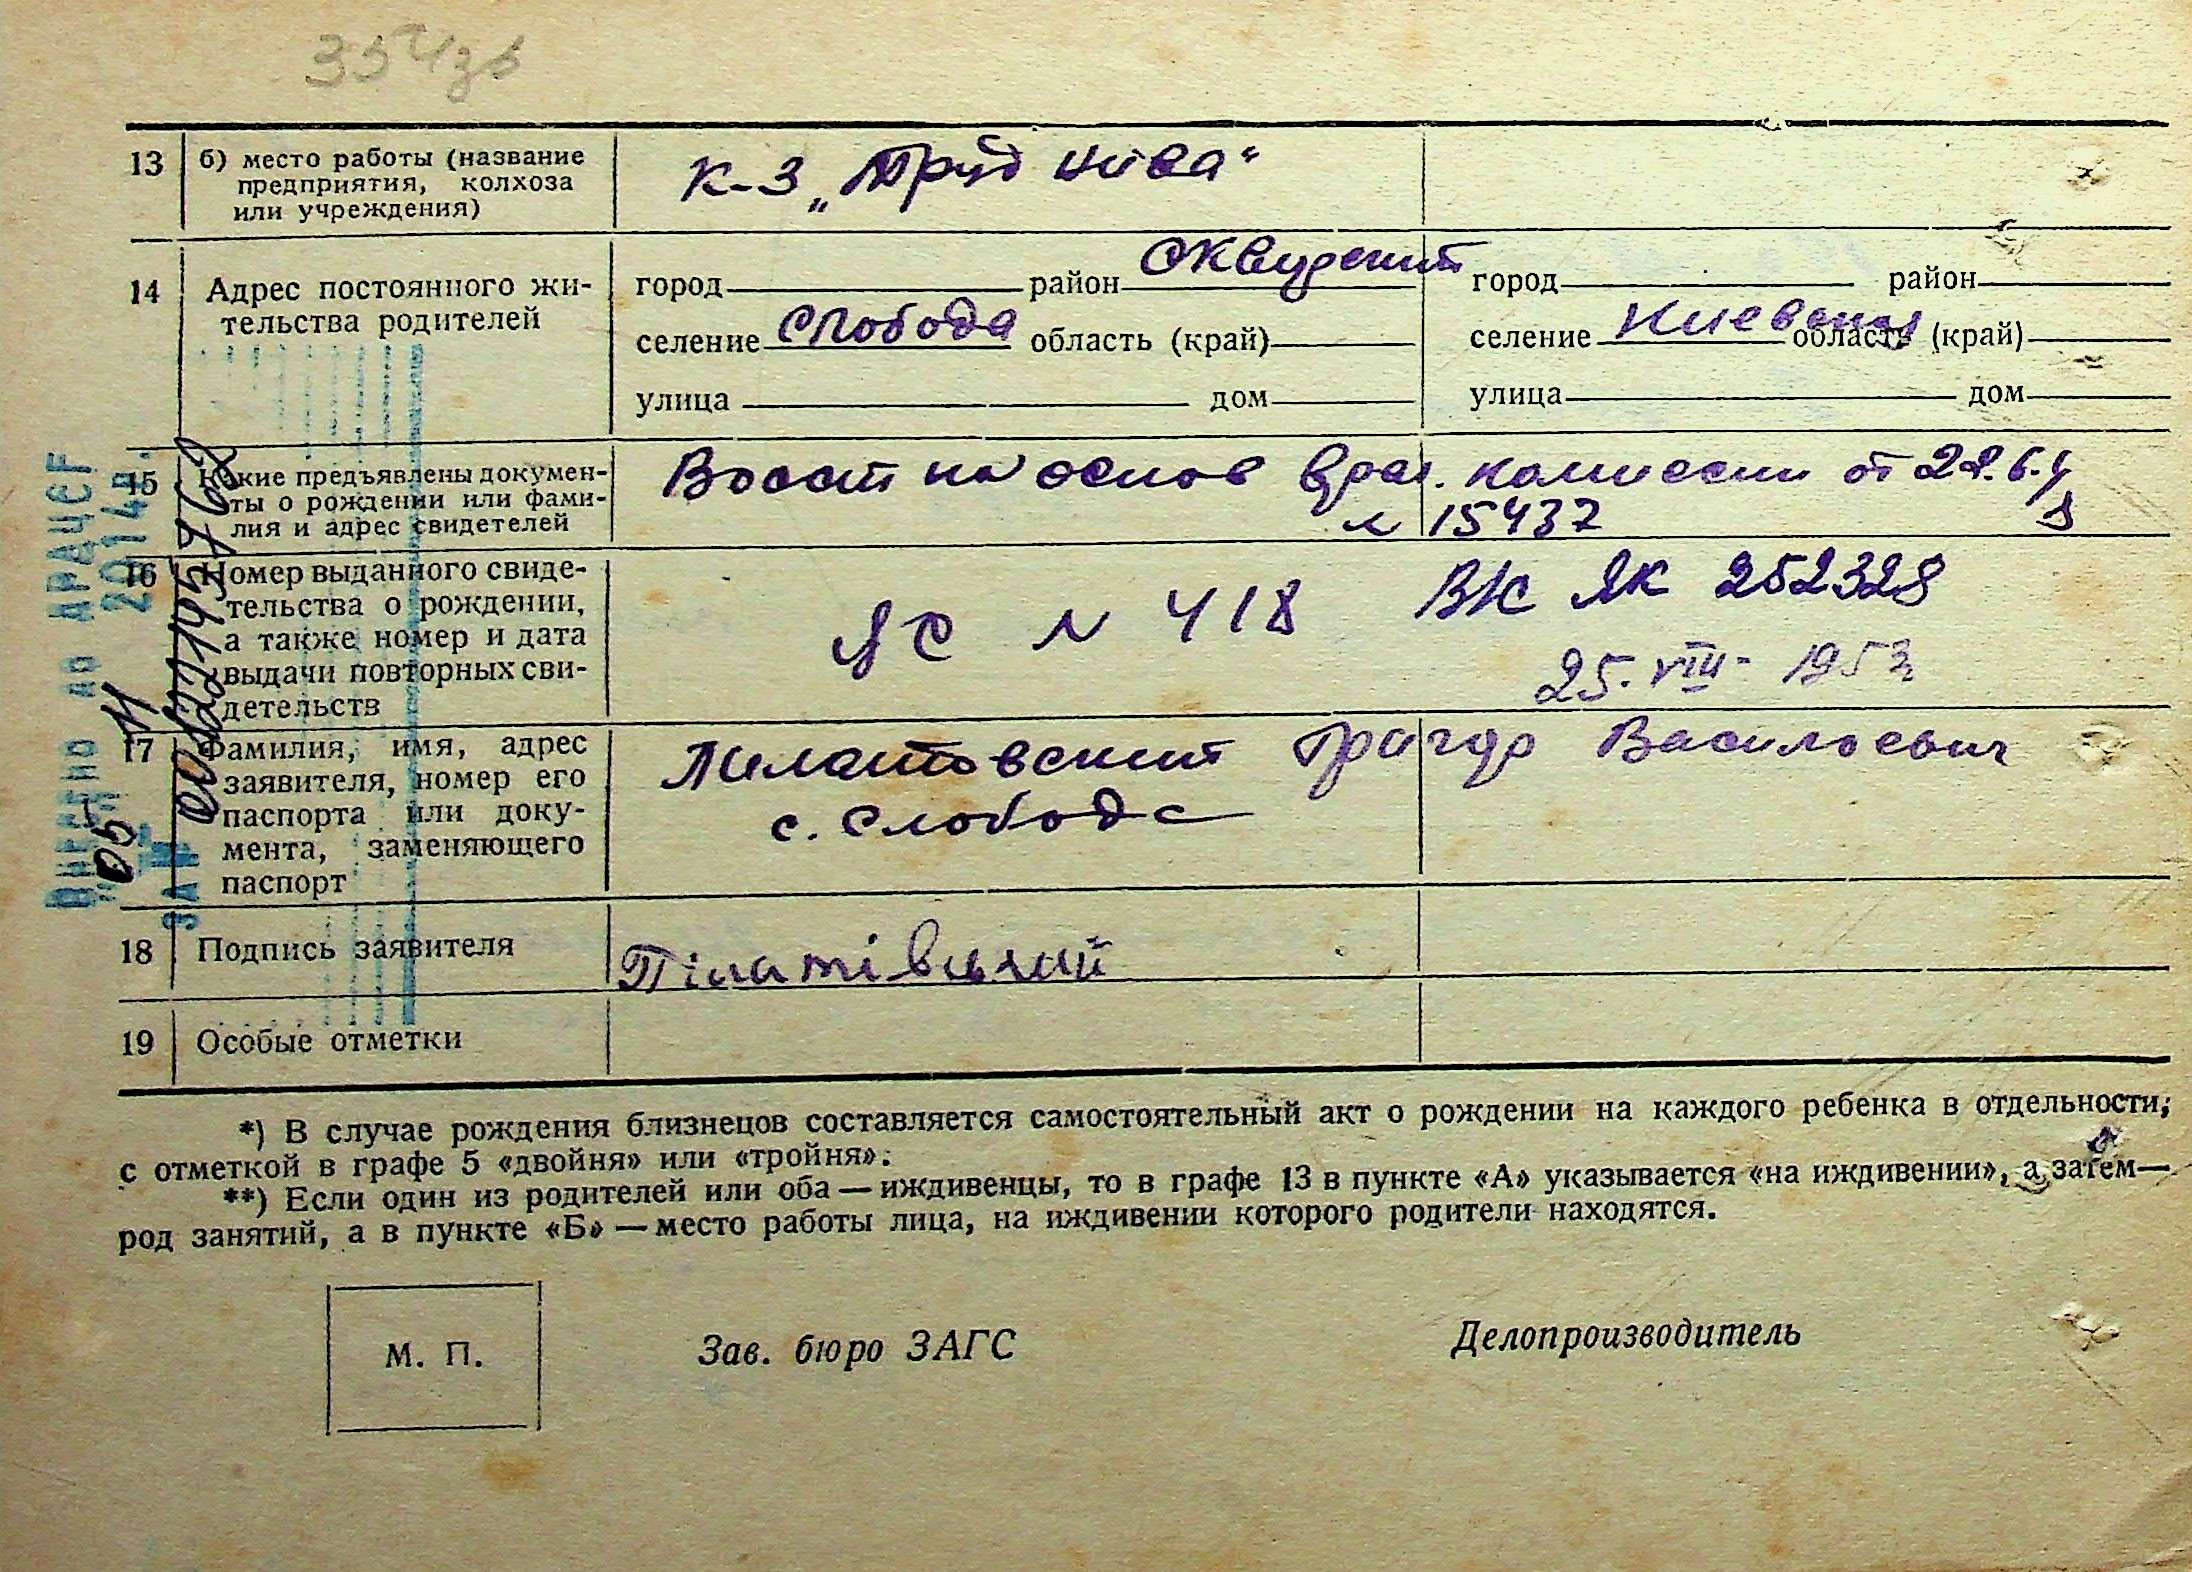 13 б) место работы (название предприятия, колхоза или учреждения) К-З „Труд нива“
14 Адрес постоянного жительства родителей
город район Сквирский город район
селение Слобода область (край) селение Киевская область (край)
улица дом улица дом
15 Какие предъявлены документы о рождении или фамилия и адрес свидетелей
Восст на основ врач. комиссии от 22.6.
№ 15437
16 Номер выданного свидетельства о рождении, а также номер и дата выдачи повторных свидетельств
ЯС № 418 ЯК 252328
25. VIII - 1953
17 Фамилия, имя, адрес заявителя, номер его паспорта или документа, заменяющего паспорт
Пилатовский Григор Васильевич
с. Слобода
18 Подпись заявителя Пілатівський
19 Особые отметки
*) В случае рождения близнецов составляется самостоятельный акт о рождении на каждого ребенка в отдельности,
с отметкой в графе 5 «двойня» или «тройня».
**) Если один из родителей или оба — иждивенцы, то в графе 13 в пункте «А» указывается «на иждивении», а затем —
род занятий, а в пункте «Б» — место работы лица, на иждивении которого родители находятся.
М. П. Зав. бюро ЗАГС Делопроизводитель
ВНЕСЕНО ДО ДРАЦСГ
05 11 2014р.